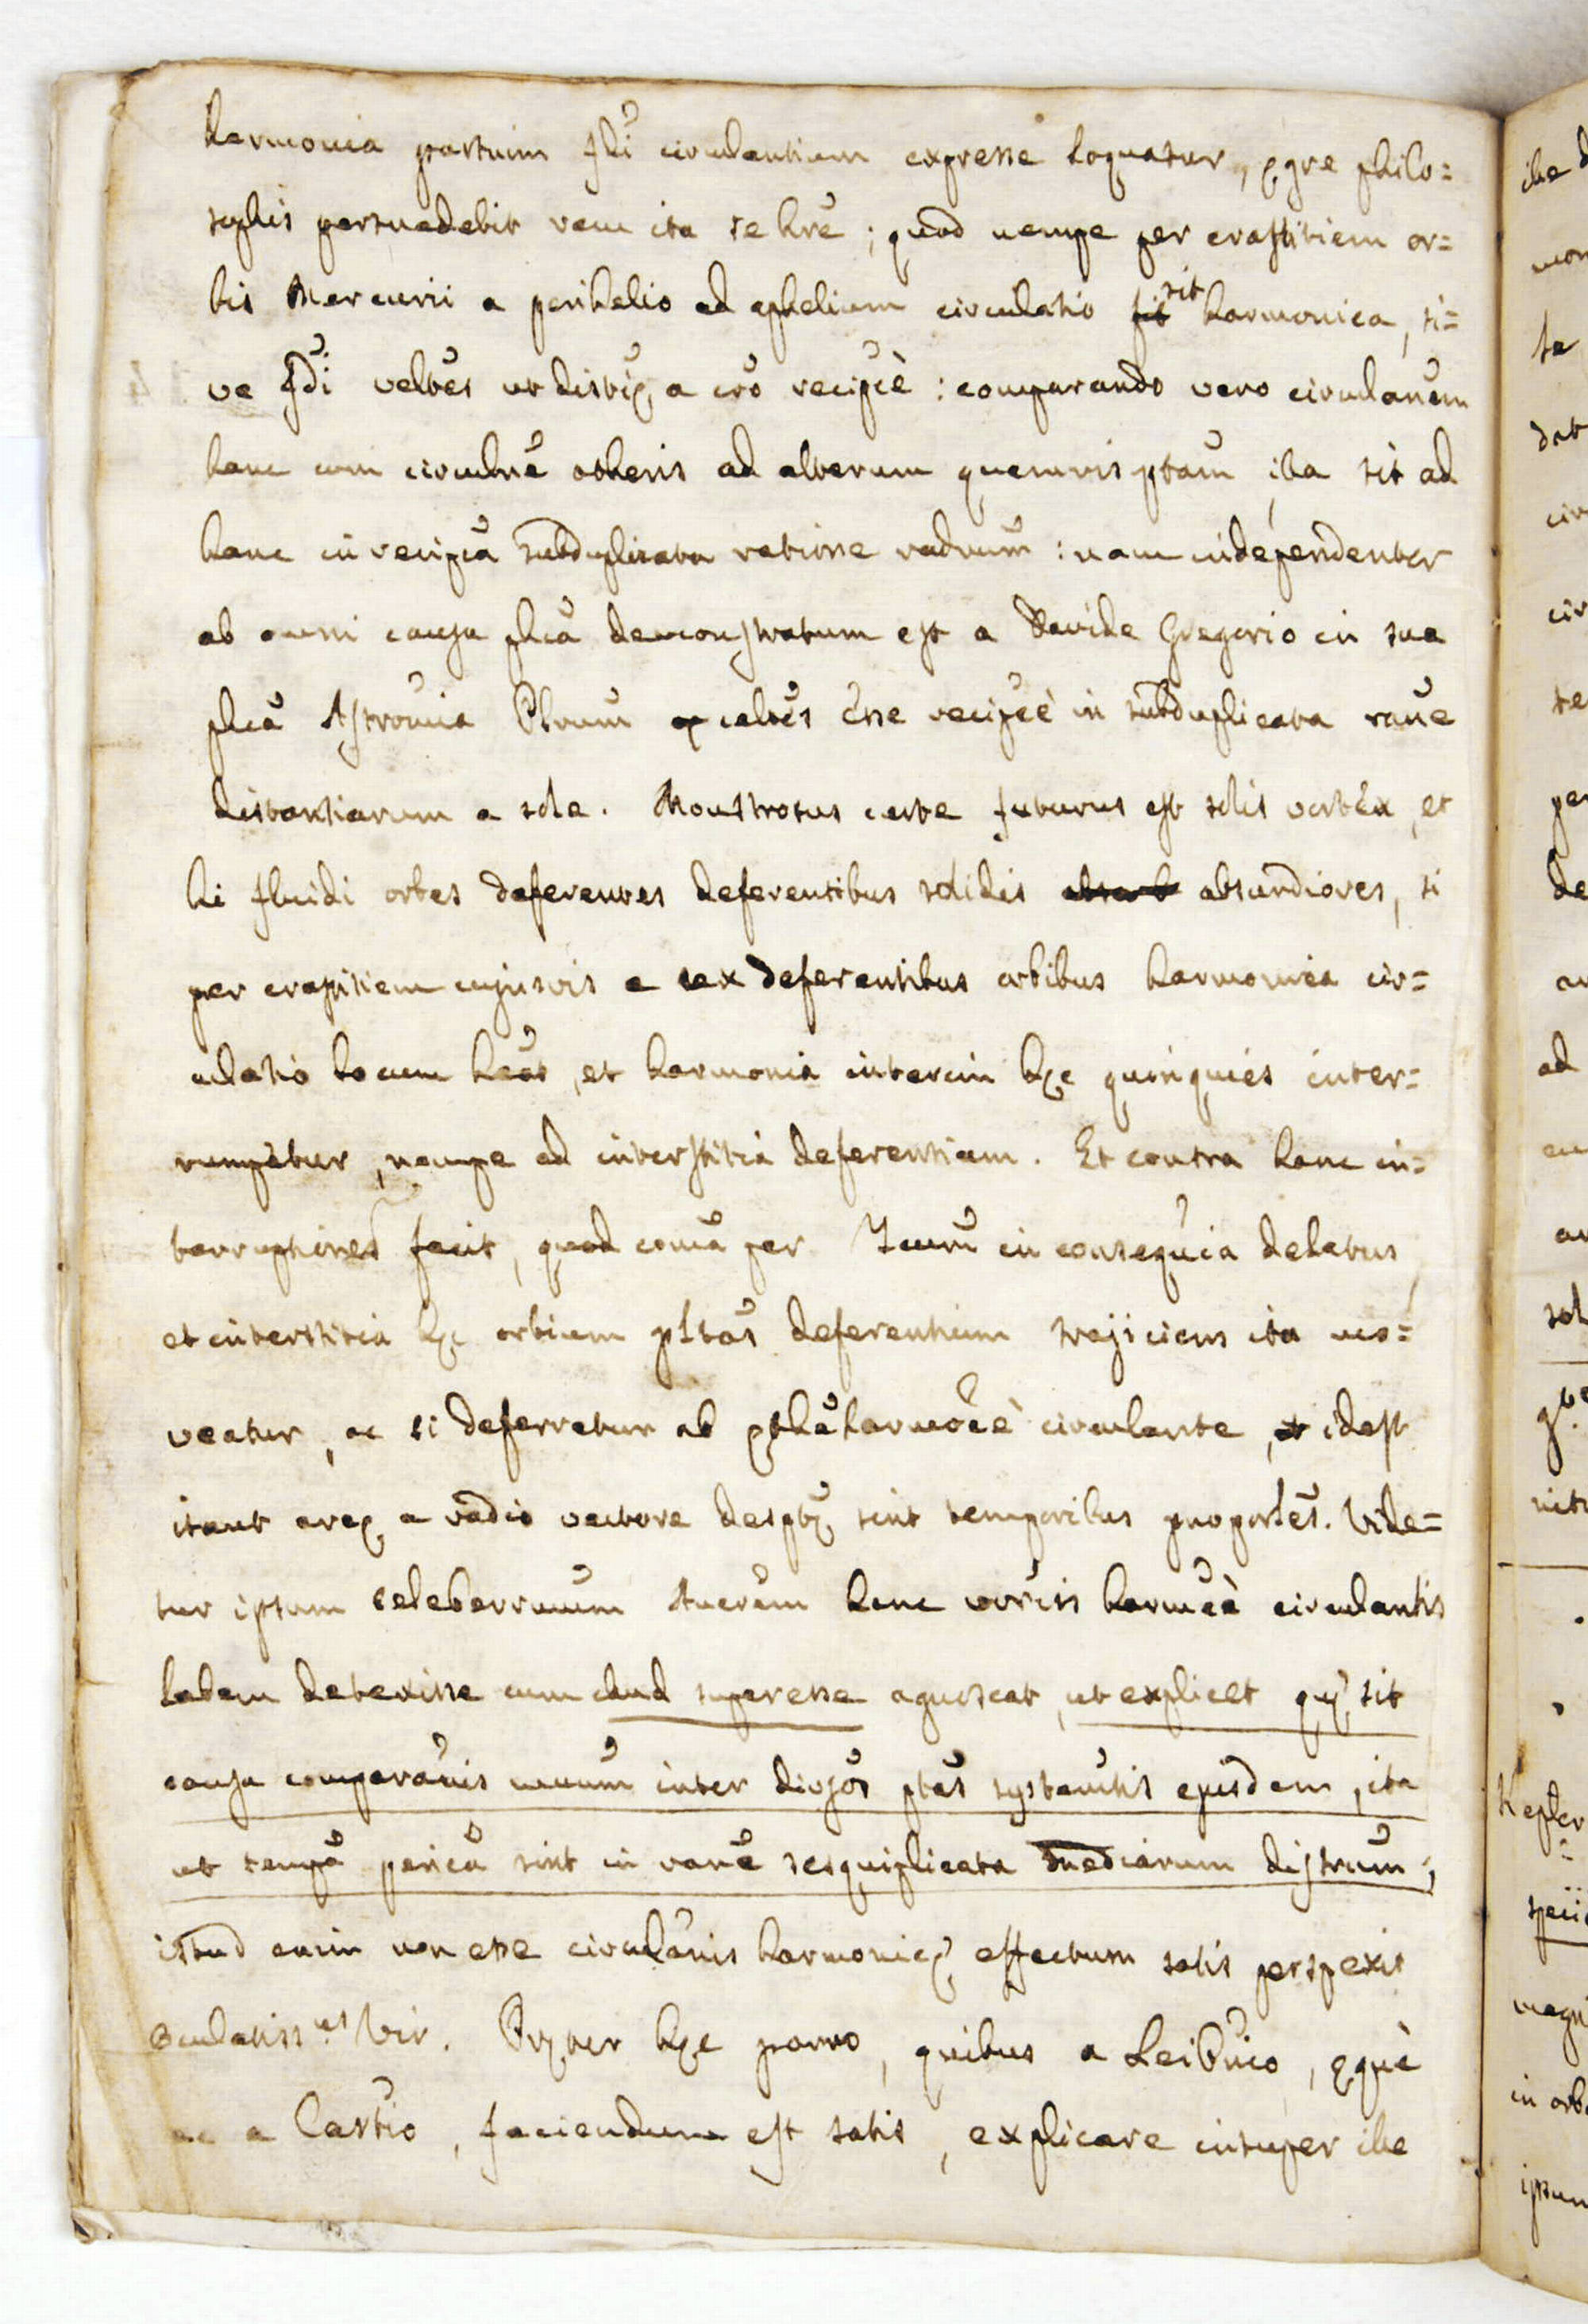 harmonia partium fldi circulantium expresse loquatur, ęgre philo=
sophis persuadebit rem ita se hre; quod nempe per crassitiem or=
bis Mercurii a perihelio ad aphelium circulatio sit harmonica, si=
ve fldi veltes ut distię a cro recipcè: comparando vero circulanem
hanc cum circulne ętheris ad alterum quemvis pltam illa sit ad
hanc in recipca subduplicata ratione radrum: nam independenter
ab omni causa phca demonstratum est a Davide Gregorio in sua
phca Astronia Pltrum celtes esse recipcè in subduplicata rane
distantiarum a sole. Monstrosus certe futurus est solis vortex, et
hi fluidi orbes deferentes deferentibus solidis absurdiores, si
per crassitiem cujusvis e sex deferentibus orbibus harmonica cir=
culatio locum heat, et harmonia interim hęc quinquies inter=
rumpatur, nempe ad interstitia deferentium. Et contra hanc in=
terruptionem facit, quod coma per Imum in consequia delatus,
et interstitia hęc orbium pltas deferentium trajiciens ita mo=
veatur, ac si deferretur ab ętha harmocè circulante, idest
itaut areę a radio vectore desptę sint temporibus proportles. Vide=
tur ipsum celeberrimum Aucrem hanc vorcis harmcè circulantis
labem detexisse cum illud superesse agnoscat, ut explicet quę sit
causa comparanis mnum inter diversos ptas systemtis ejusdem, ita
ut tempa perica sint in rane sesquiplicata mediarum distrum;
istud enim non esse circulanis harmonicę effectum satis perspexit
Oculatiss.us Vir. Pręter hęc porro, quibus a Leibnio, ęquè
ac a Cartio, faciendum est satis, explicare insuper ille